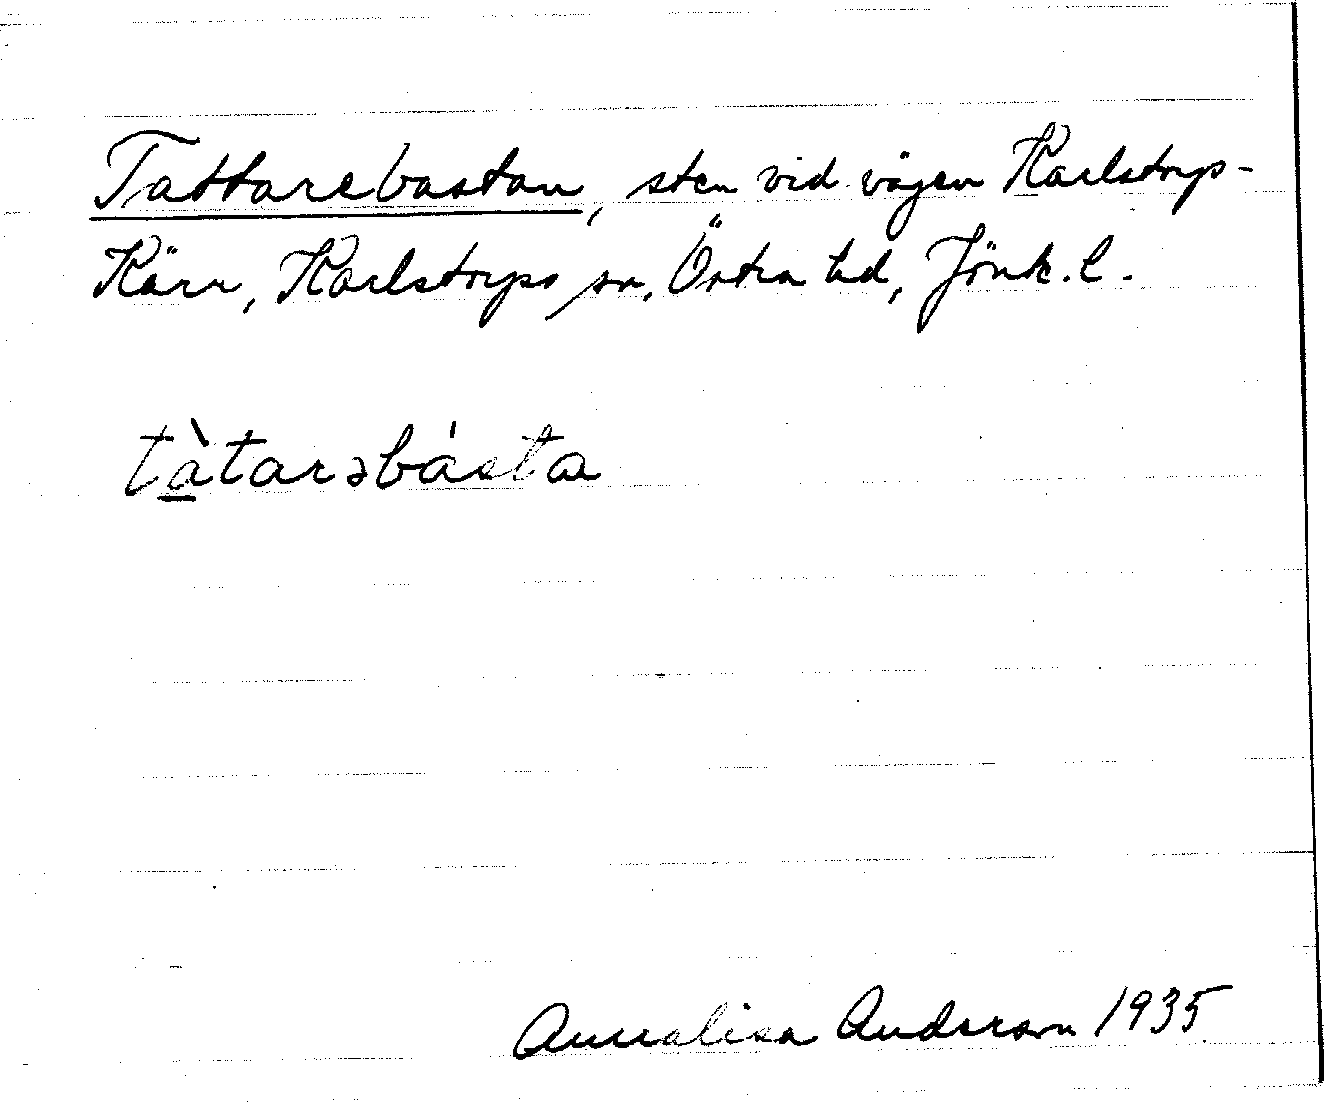 Tattarebastan, sten vid vägen Karlstorps-
Kärr, Karlstorps sn, Östra hd, Jönk. l.
tàtarəbásta
Annalisa Anderson 1935